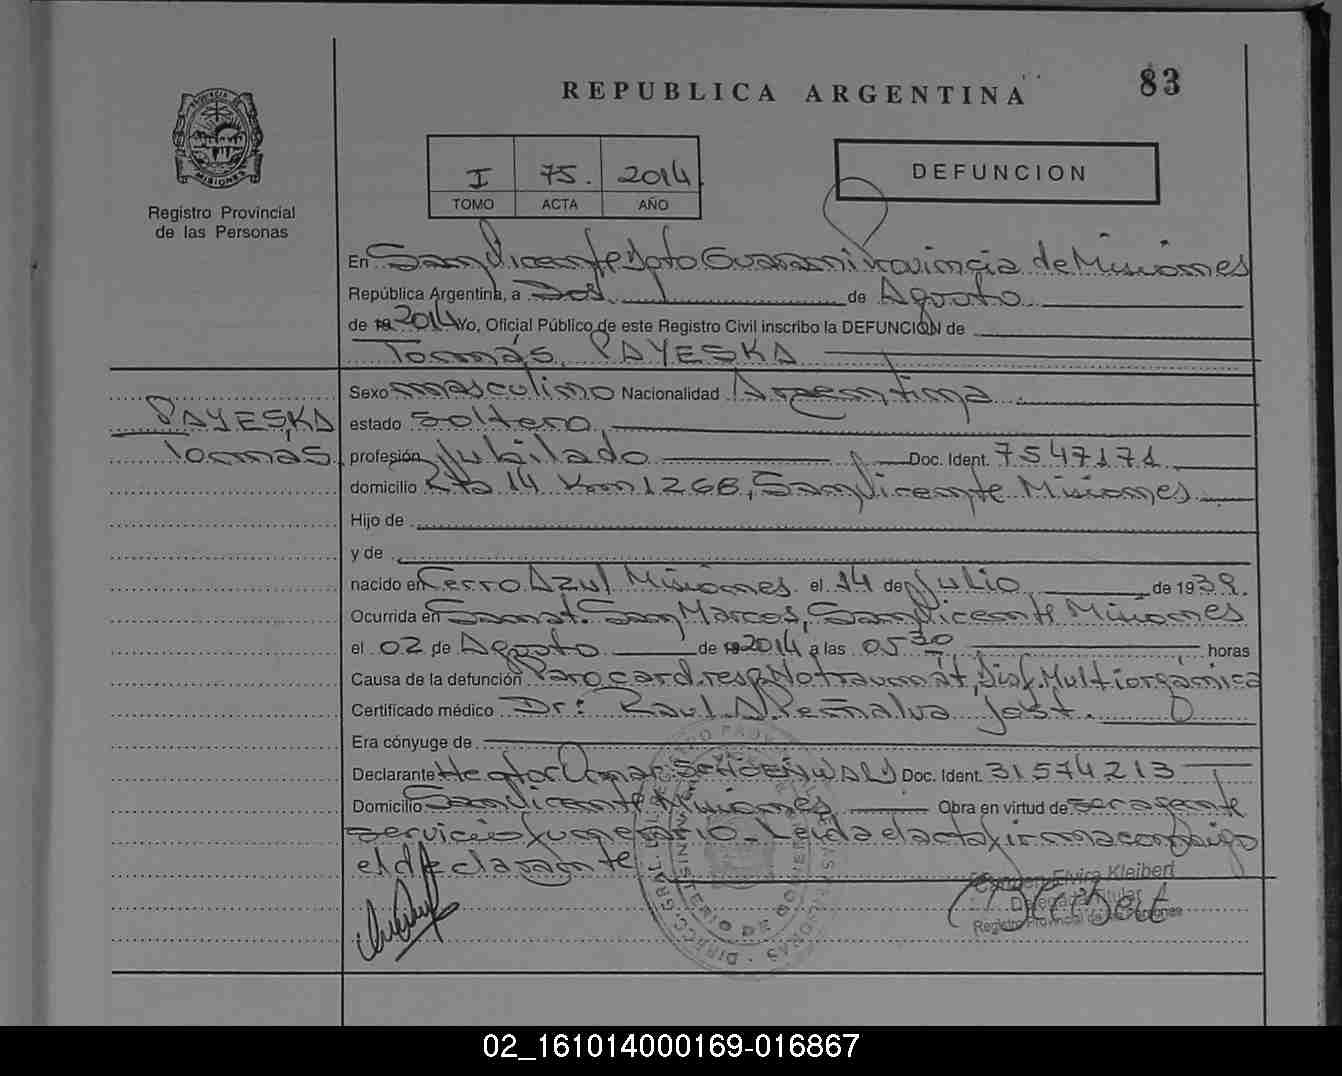 83
REPUBLICA ARGENTINA
PROVINCIA DE
MISIONES
Registro Provincial
de las Personas
I 75. 2014
TOMO ACTA AÑO
DEFUNCION
En San Vicente Dpto Guarani Provincia de Misiones
República Argentina, a Dos de Agosto
de 19 2014 Yo, Oficial Público de este Registro Civil inscribo la DEFUNCION de
Tomás PAYESKA
PAYESKA
Tomás
Sexo masculino Nacionalidad Argentina
estado soltero
profesión Jubilado Doc. Ident. 7547171
domicilio Rta 14 Km 1268, San Vicente Misiones
Hijo de
y de
nacido en Cerro Azul Misiones el 14 de Julio de 1939.
Ocurrida en Sanat. San Marcos, San Vicente Misiones
el 02 de Agosto de 19 2014 a las 05 30 horas
Causa de la defunción Paro card. resp. No traumát, Disf. Multiorgánica
Certificado médico Dr: Raul A. Peñalva
Era cónyuge de
Declarante Hector Omar Doc. Ident. 31574213
Domicilio San Vicente Misiones Obra en virtud de ser agente
servicio funerario. Leida el acta firma conmigo
el declarante
Elvira Kleibert
Titular
Registro Provincial de las Personas
02_161014000169-016867